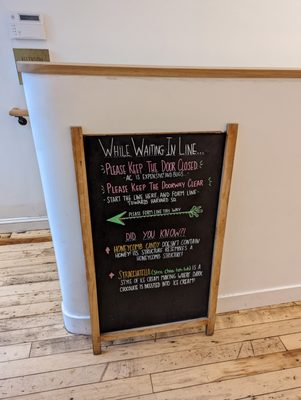 While Waiting In Line...
Please Keep The Door Closed
AC is expensive and bugs...
Please Keep The Doorway Clear
Start the line here and form line
towards Harvard Sq.
Please form line this way
Did you know?!
Honeycomb candy doesn't contain
honey! Its structure resembles a
honeycomb structure!
Stracciatella is a
style of ice cream making where dark
chocolate is drizzled into ice cream!